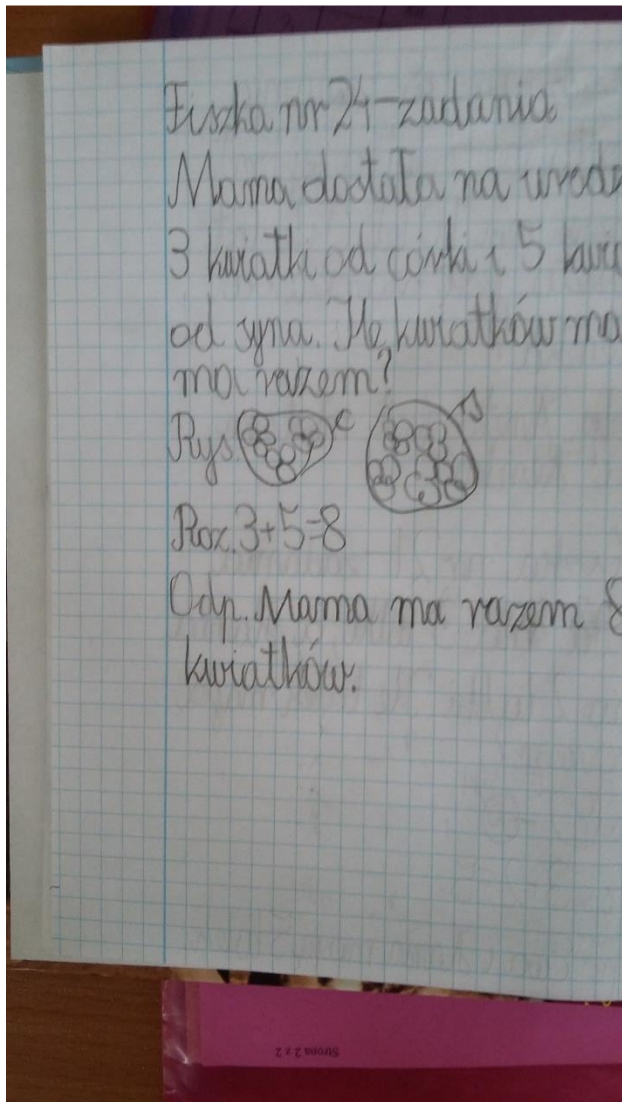 Fiszka nr 24-zadania
Mama dostała na urodz
3 kwiatki od córki i 5 kwia
od syna. Ile kwiatków ma
ma razem?
Rys. C S
Roz. 3+5=8
Odp. Mama ma razem 8
kwiatków.
Strona 2 z 2